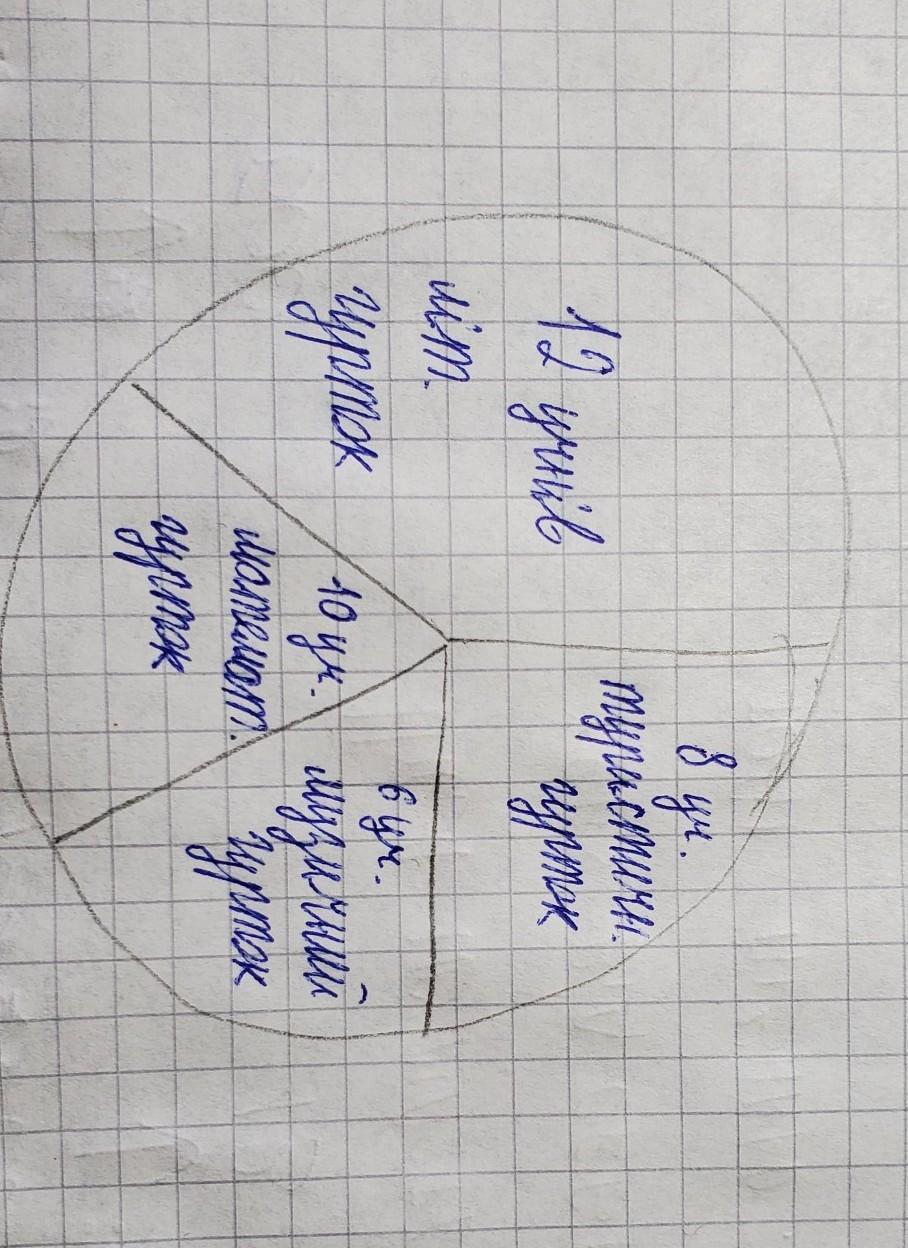 12 учнів
літ.
гурток
8 уч.
туристичн.
гурток
10 уч.
математ.
гурток
6 уч.
музичний
гурток